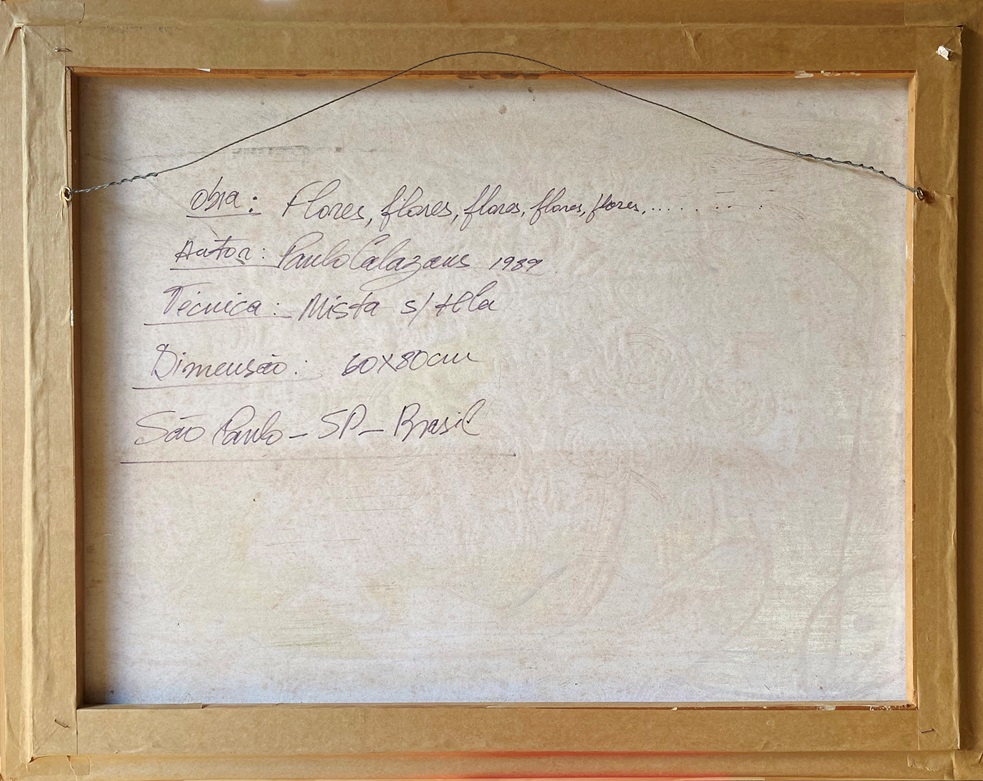 Obra: Flores, flores, flores, flores, flores,..........
Autor: Paulo Calazans 1989
Técnica: Mista s/ tela
Dimensão: 60x80cm
São Paulo - SP - Brasil